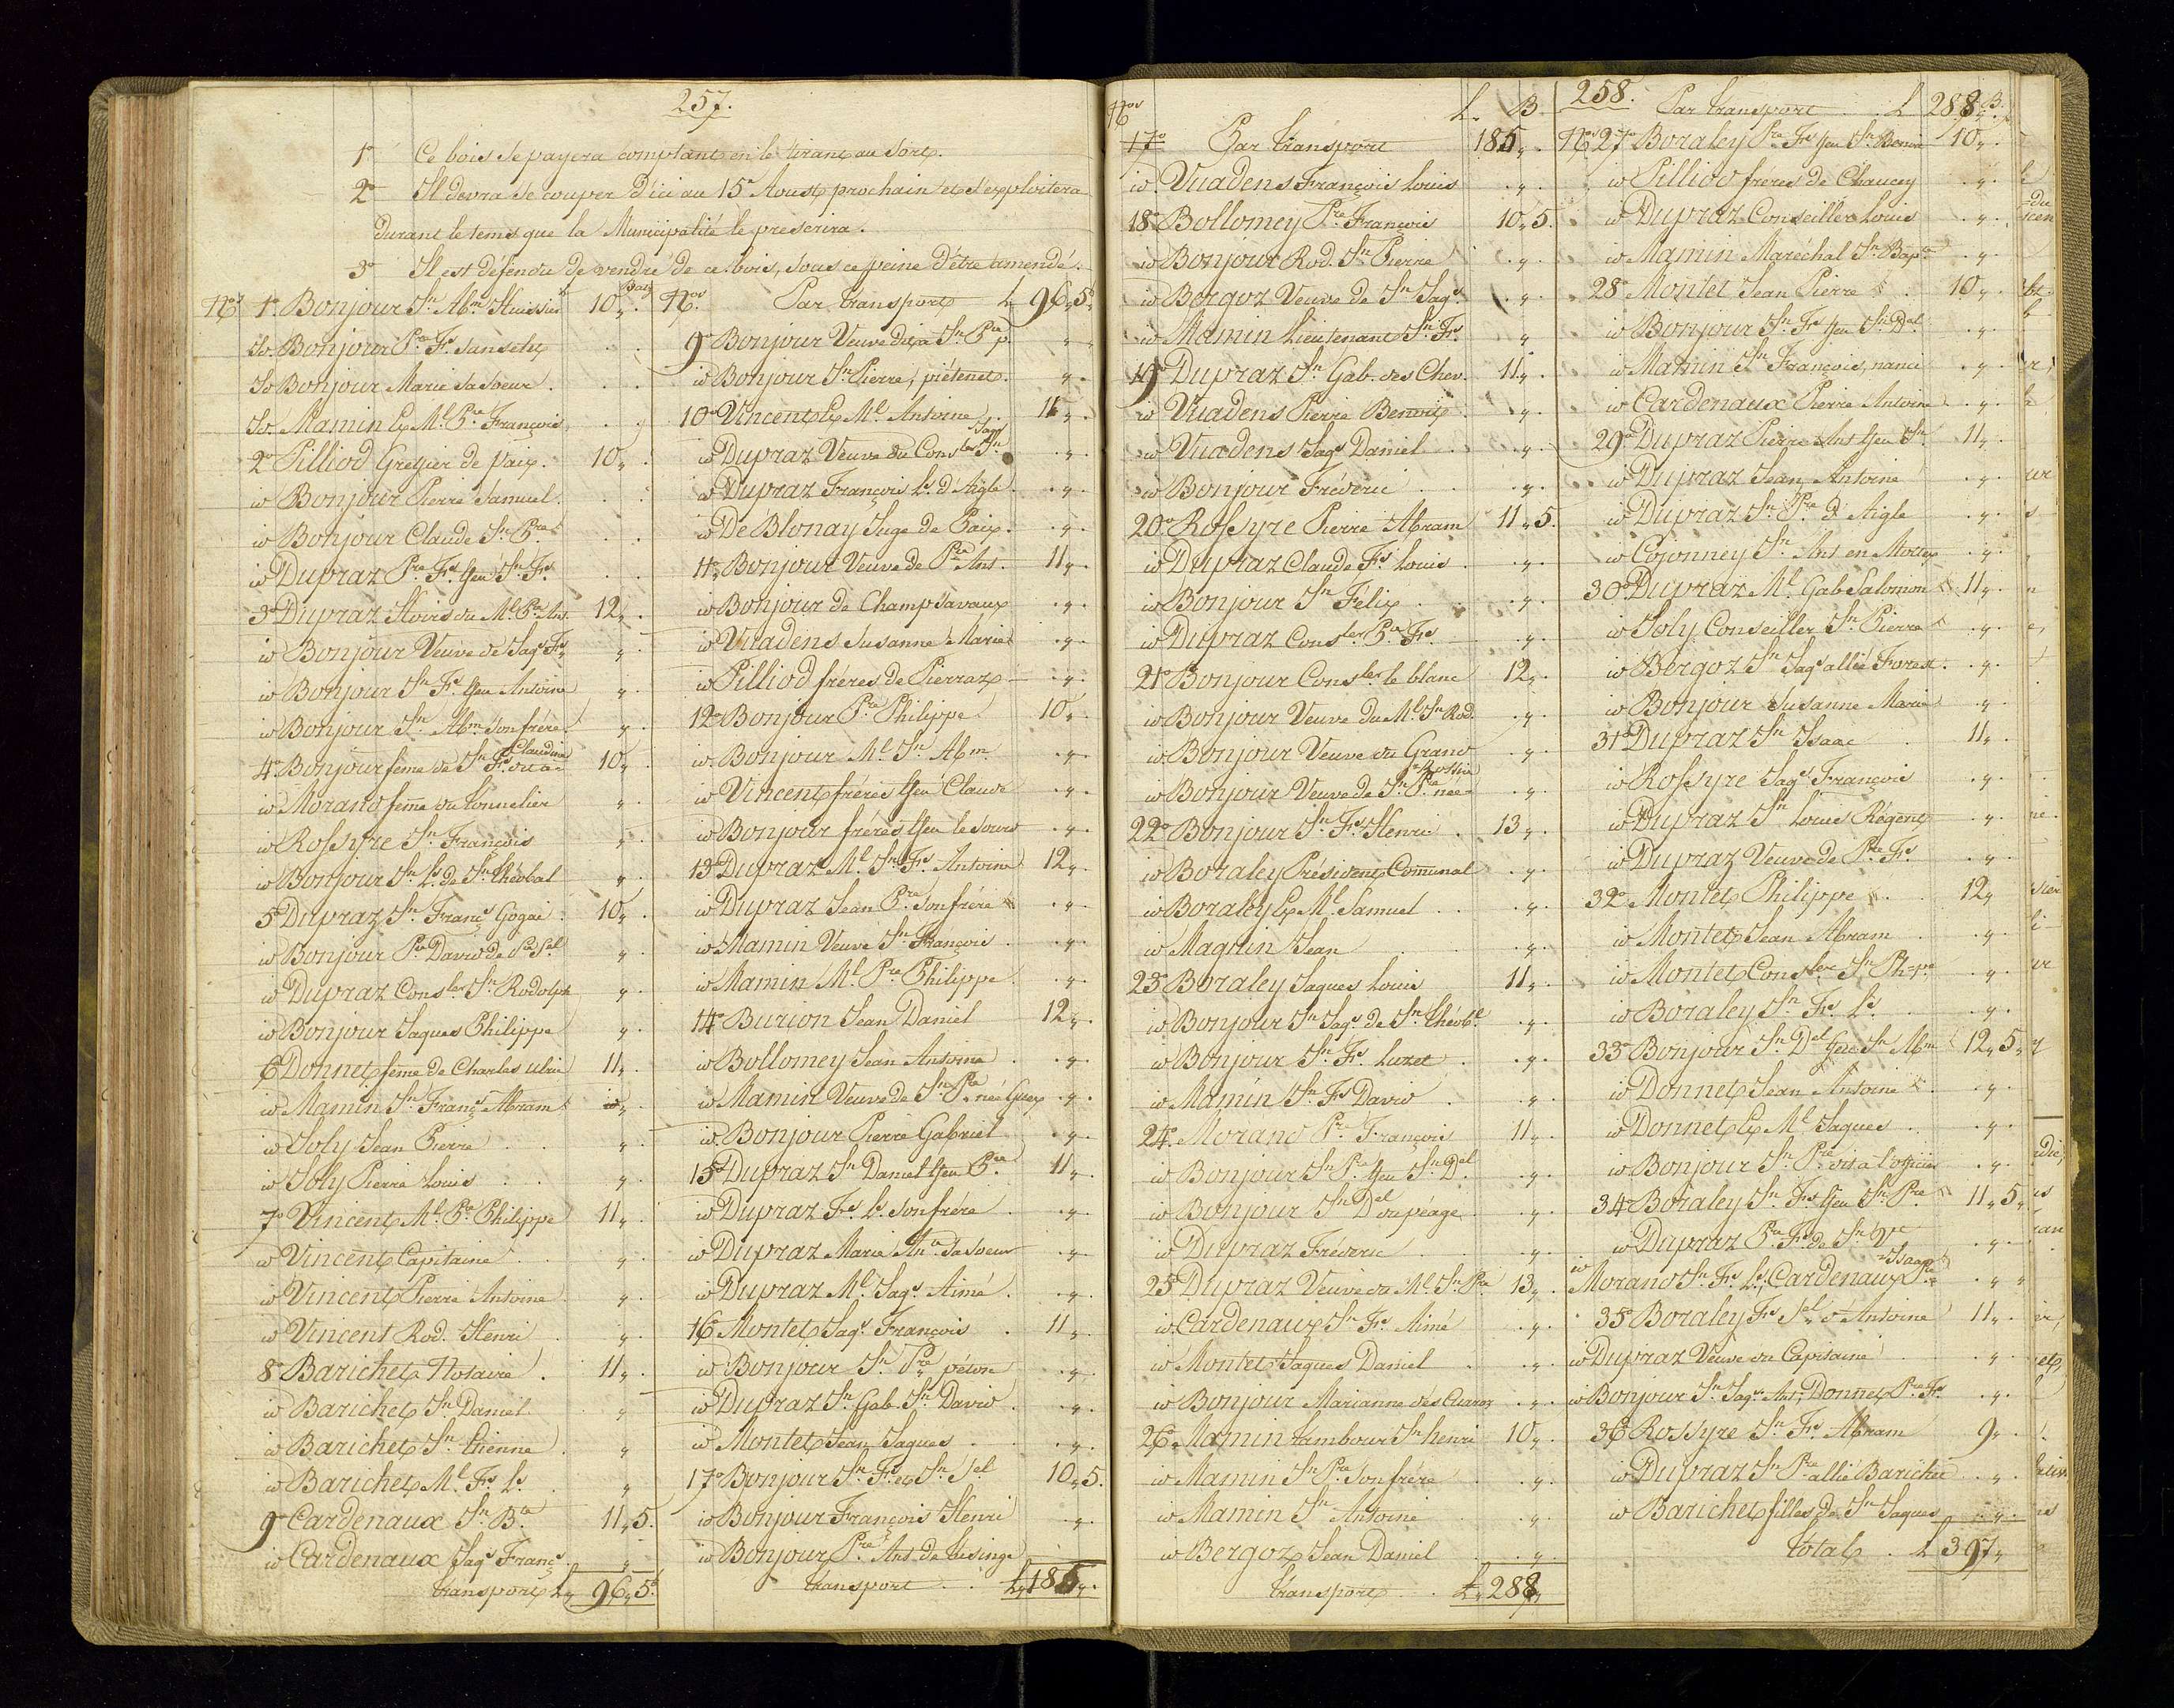 257.
1° Ce bois se payera comptant en le tirant au sort.
2° Il devra se couper d'ici au 15e Aoust prochain et s'exploitera
durant le tems que la Municipalité le prescrira.
3° Il est défendu de vendre de ce bois, sous peine d'être amendé.
Nos 1° Bonjour Jn Abm Huissier 10 „ Batz
id Bonjour Pre Fs
id Bonjour Marie sa soeur
id Mamin Ml Pre François
2° Pilliod Greffier de paix 10 „
id Bonjour Pierre Samuel
id Bonjour Claude Jn Pre
id Dupraz Pre Fs feu Jn Fs
3° Dupraz Hoirs du Ml Pre Ant 12 „
id Bonjour Veuve de Jaqs Fs „
id Bonjour Jn Fs feu Antoine „
id Bonjour Jn Abm son frère „
4° Bonjour feme de Jn Fs dit a Claudine 10 „
id Morand feme du tonnelier „
id Rossyre Jn François „
id Bonjour Jn Ls de Jn Théobal „
5° Dupraz Jn Franç Gogai 10 „
id Bonjour Pre David de Pre Sel „
id Dupraz Consler Jn Rodolph „
id Bonjour Jaques Philippe „
6° Donnet feme de Charles Ulric 11 „
id Mamin Jn Franç Abram „
id Joly Jean Pierre „
id Joly Pierre Louis „
7° Vincent Ml Pre Philippe 11 „
id Vincent Capitaine „
id Vincent Pierre Antoine „
id Vincent Rod. Henri „
8° Barichet Notaire 11 „
id Barichet Jn Daniel „
id Barichet Jn Etienne „
id Barichet Ml Fs Ls „
9° Cardenaux Jn Bte 11 „ 5
id Cardenaux Jaqs Franç „
transport L „ 96 „ 5
Nos Par transport L 96 „ 5
9° Bonjour Veuve dit a Jn Pre „
id Bonjour Jn Pierre, piétenet „
10° Vincent Ml Antoine 11 „
id Dupraz Veuve du Consler Jn Jaqs „
id Dupraz François Ls d'Aigle „
id De Blonay Juge de Paix „
11° Bonjour Veuve de Pre Ant 11 „
id Bonjour de Champsavaux „
id Vuadens Susanne Marie „
id Pilliod frères de Pierraz „
12° Bonjour Pre Philippe 10 „
id Bonjour Ml Jn Abm „
id Vincent frères feu Claude „
id Bonjour frères feu le sourd „
13° Dupraz Ml Jn Fs Antoine 12 „
id Dupraz Jean Pre son frère „
id Mamin Veuve Jn François „
id Mamin Ml Pre Philippe „
14° Burion Jean Daniel 12 „
id Bollomey Jean Antoine „
id Mamin Veuve de Jn Pre née Guex „
id Bonjour Pierre Gabriel „
15° Dupraz Jn Daniel feu Pre 11 „
id Dupraz Fs Ls son frère „
id Dupraz Marie Ante sa soeur „
id Dupraz Ml Jaqs Aimé „
16° Montet Jaqs François 11 „
id Bonjour Jn Pre péton „
id Dupraz Jn Gab. Jn David „
id Montet Jean Jaques „
17° Bonjour Jn Fs et Jn Sel 10 „ 5
id Bonjour François Henri „
id Bonjour Pre Ant de Lesinge
transport L „ 185 „
Nos L. B.
17° Par transport 185 „
id Vuadens François Louis „
18° Bollomey Pre François 10 „ 5
id Bonjour Rod. Jn Pierre „
id Bergoz Veuve de Jn Jaqs „
id Mamin Lieutenant Jn Fs „
19° Dupraz Jn Gab. des Chev. 11 „
id Vuadens Pierre Benoit „
id Vuadens Jaqs Daniel „
id Bonjour Fréderic „
20° Rossyre Pierre Abram 11 „ 5
id Dupraz Claude Fs Louis „
id Bonjour Jn Félix „
id Dupraz Consler Pre Fs „
21° Bonjour Consler le blanc 12 „
id Bonjour Veuve du Ml Jn Rod. „
id Bonjour Veuve du Grand „
id Bonjour Veuve de Jn Pre née „
22° Bonjour Jn Fs Henri 13 „
id Boraley Président Comunal „
id Boraley Ml Samuel „
id Magnin Jean „
23° Boraley Jaques Louis 11 „
id Bonjour Jn Jaqs de Jn Théobl „
id Bonjour Jn Fs Luzet „
id Mamin Jn Fs David „
24° Morand Pre François 11 „
id Bonjour Jn Pre feu Jn Dl „
id Bonjour Jn Del du péage „
id Dupraz Fréderic „
25° Dupraz Veuve du Ml Jn Pre 13 „
id Cardenaux Jn Fs Aimé „
id Montet Jaques Daniel „
id Bonjour Marianne des Cuaroz „
26° Mamin tambour Jn henri 10 „
id Mamin Jn Pre son frère „
id Mamin Jn Antoine „
id Bergoz Jean Daniel „
transport L „ 288 „
258.
Par transport L 288 „ B.
Nos 27° Boraley Pre Fs feu Jn Benoi 10 „
id Pilliod frères de Chaucey „
id Dupraz Conseiller Louis „
id Mamin Maréchal Jn Bapte „
28° Montet Jean Pierre 10 „
id Bonjour Jn Fs feu Jn Del „
id Mamin Jn François, nanci „
id Cardenaux Pierre Antoine „
29° Dupraz Pierre Ant feu Jn 11 „
id Dupraz Jean Antoine „
id Dupraz Jn Pre d'Aigle „
id Cojonney Jn Ant en „
30° Dupraz Ml Gab Salomon 11 „
id Joly Conseiller Jn Pierre „
id Bergoz Jn Jaqs allié Forest „
id Bonjour Susanne Marie „
31° Dupraz Jn Isaac 11 „
id Rossyre Jaqs François „
id Dupraz Jn Louis Régent „
id Dupraz Veuve de Pre Fs „
32° Montet Philippe 12 „
id Montet Jean Abram „
id Montet Consler Jn Phpe „
id Boraley Jn Fs Ls „
33° Bonjour Jn Del feu Jn Abm 12 „ 5
id Donnet Jean Antoine „
id Donnet Ml Jaques „
id Bonjour Jn Pre dit a l'officier „
34° Boraley Jn Fs feu Jn Pre 11 „ 5
id Dupraz Pre Fs de Jn Vt „
id Morand Jn Fs Ls, Cardenaux Pre Isaac „
35° Boraley Fs Sel d'Antoine 11 „
id Dupraz Veuve du Capitaine „
id Bonjour Jn Jaqs Ant, Donnet Pre Fs „
36° Rossyre Jn Fs Abram 9 „
id Dupraz Jn Pre allié Barichet „
id Barichet filles de Jn Jaques „
total L 397 „